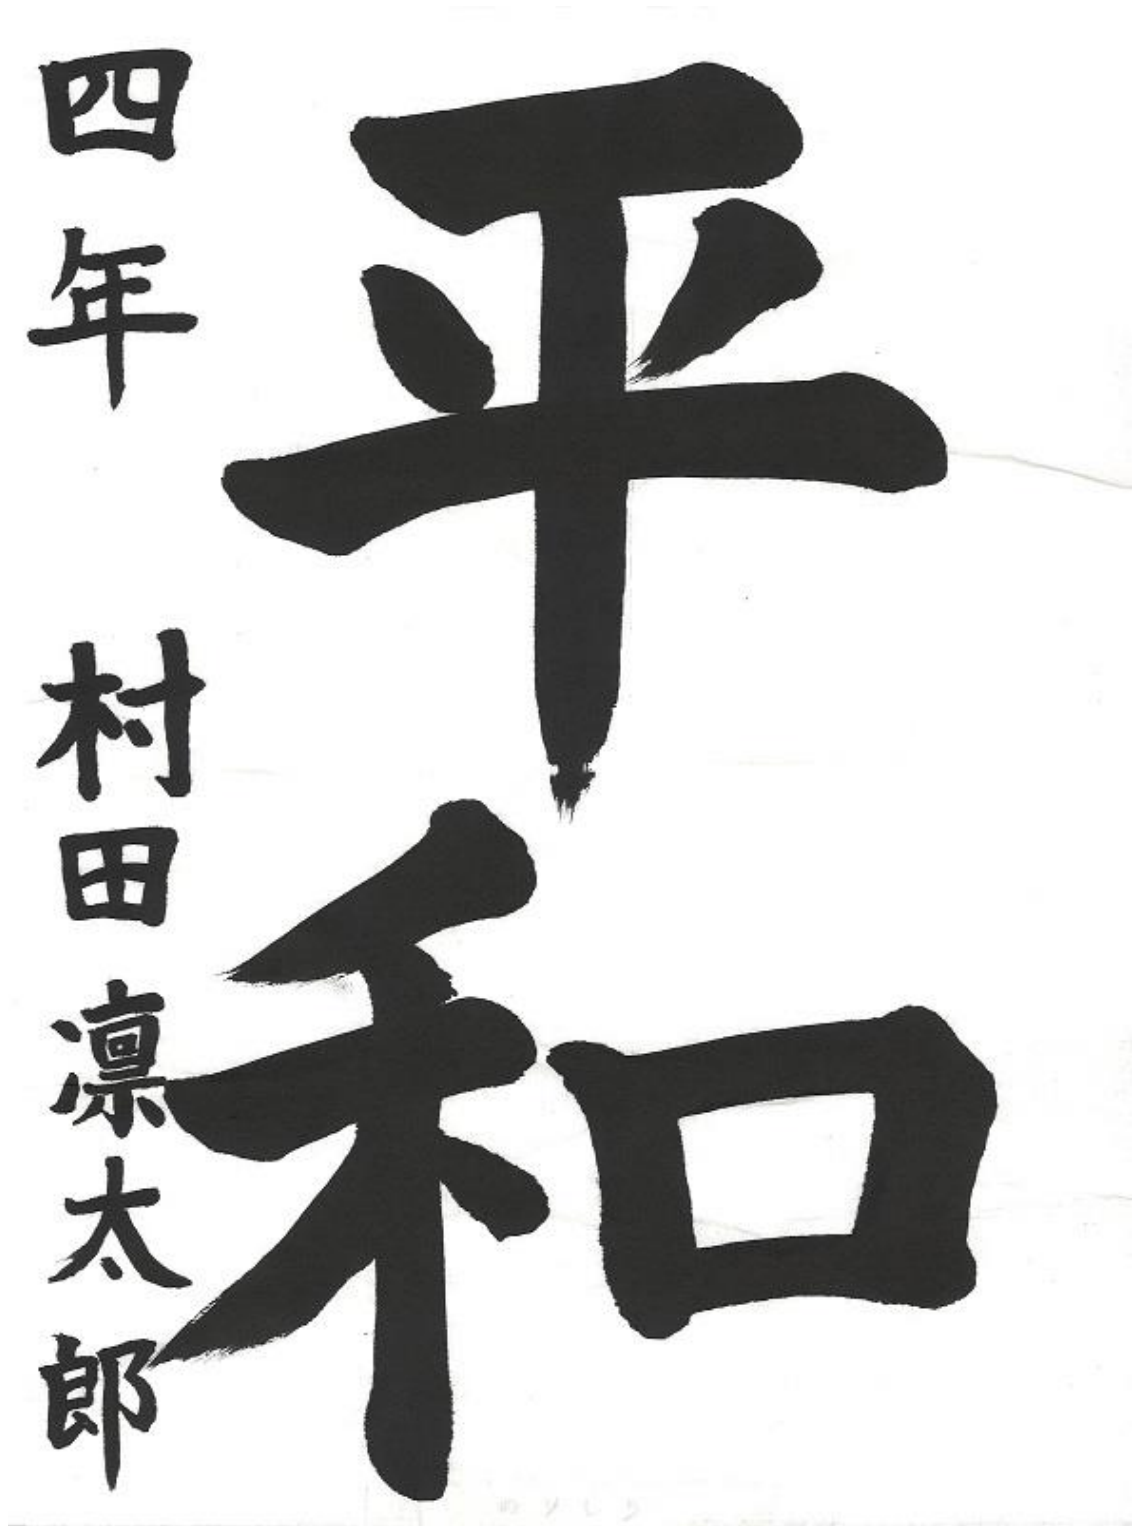 平和
四年 村田凛太郎